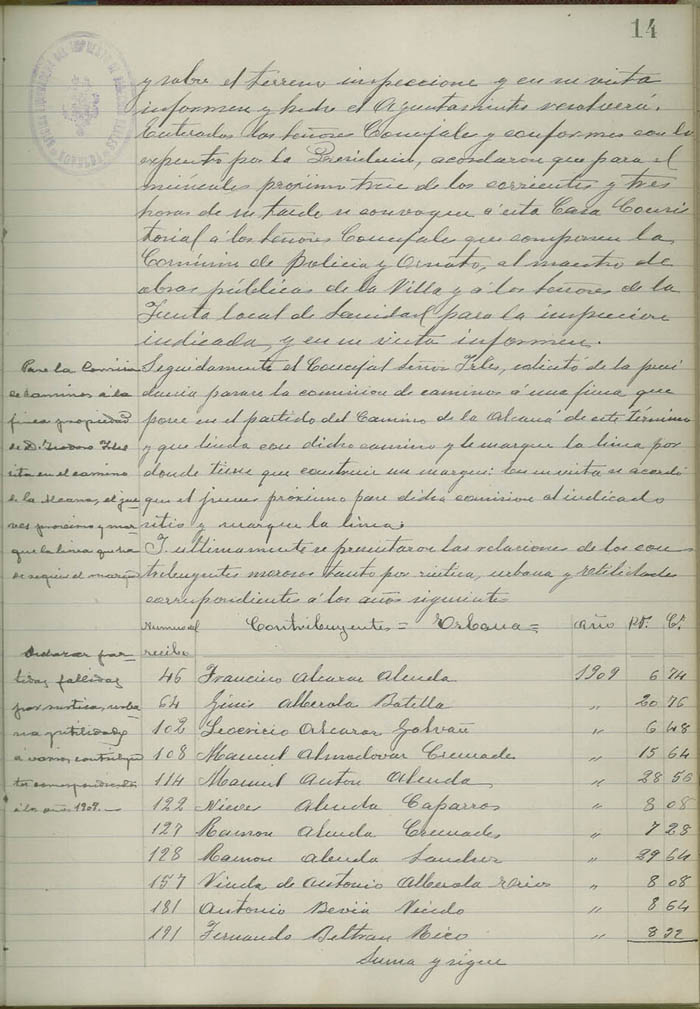 14
y sobre el terreno inspeccione y en su vista
informen y hecho el Ayuntamiento resolverá.
Enterados los señores Concejales y conformes con lo
expuesto por la Presidencia, acordaron que para el
miércoles próximo trece de los corrientes y tres
horas de su tarde se convoque á esta Casa Consis
torial á los señores Concejales que componen la
Comisión de Policia y Ornato, al maestro de
obras públicas de la Villa y á los señores de la
Junta local de Sanidad para la inspeccion
indicada, y en su vista informen.
Seguidamente el Concejal Señor Irles, solicitó de la presi
dencia pasara la comision de caminos á una finca que
posee en el partido del Camino de la Alcaná de este término
y que linda con dicho camino y le marque la linea por
donde tiene que construir un margen: En su vista se acordó
que el jueves próximo pase dicha comision al indicado
sitio y marque la linea.
Pase la Comisión
de caminos á la
finca propiedad
de D. Isidoro Irles
sita en el camino
de la Alcana, el jue-
ves próximo y mar-
que la linea que ha
de seguir el margen
Y ultimamente se presentaron las relaciones de los con-
tribuyentes morosos tanto por rústica, urbana y utilidades
correspondientes á los años siguientes
Declarar par-
tidas fallidas
por rústica, urba-
na y utilidades
á varios contribuyen
tes correspondientes
á los años 1909.
Numero del recibo Contribuyentes = Urbana = Año Pts. Cs.
46 Francisco Alcaraz Alenda 1909 6 74
64 Ginés Alberola Botella " 20 76
102 Leoncio Alcaraz Galvañ " 6 48
108 Manuel Almodovar Cremades " 15 64
114 Manuel Anton Alenda " 28 56
122 Nieves Alenda Caparros " 8 08
127 Ramon Alenda Cremades " 7 28
128 Ramon Alenda Sanchez " 29 64
157 Viuda de Antonio Alberola Rios " 8 08
181 Antonio Beviá Vicedo " 8 64
191 Fernando Beltran Rico " 8 22
Suma y sigue